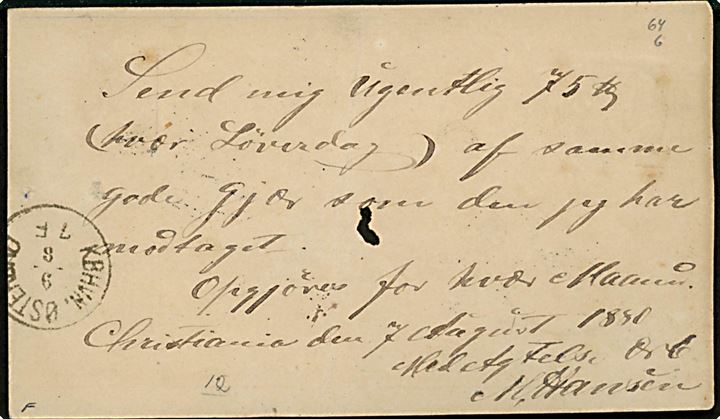 64
6
Send mig ugentlig 75 ℔
(hvær Løverdag) af samme
gode Gjær som den jeg har
modtaget.
Opgjöres for hvær Maaned.
Christiania den 7 August 1880
Med Agtelse Ærb
M. Hansen
KBHVN. ØSTERBRO
9 8
7 F
12
F